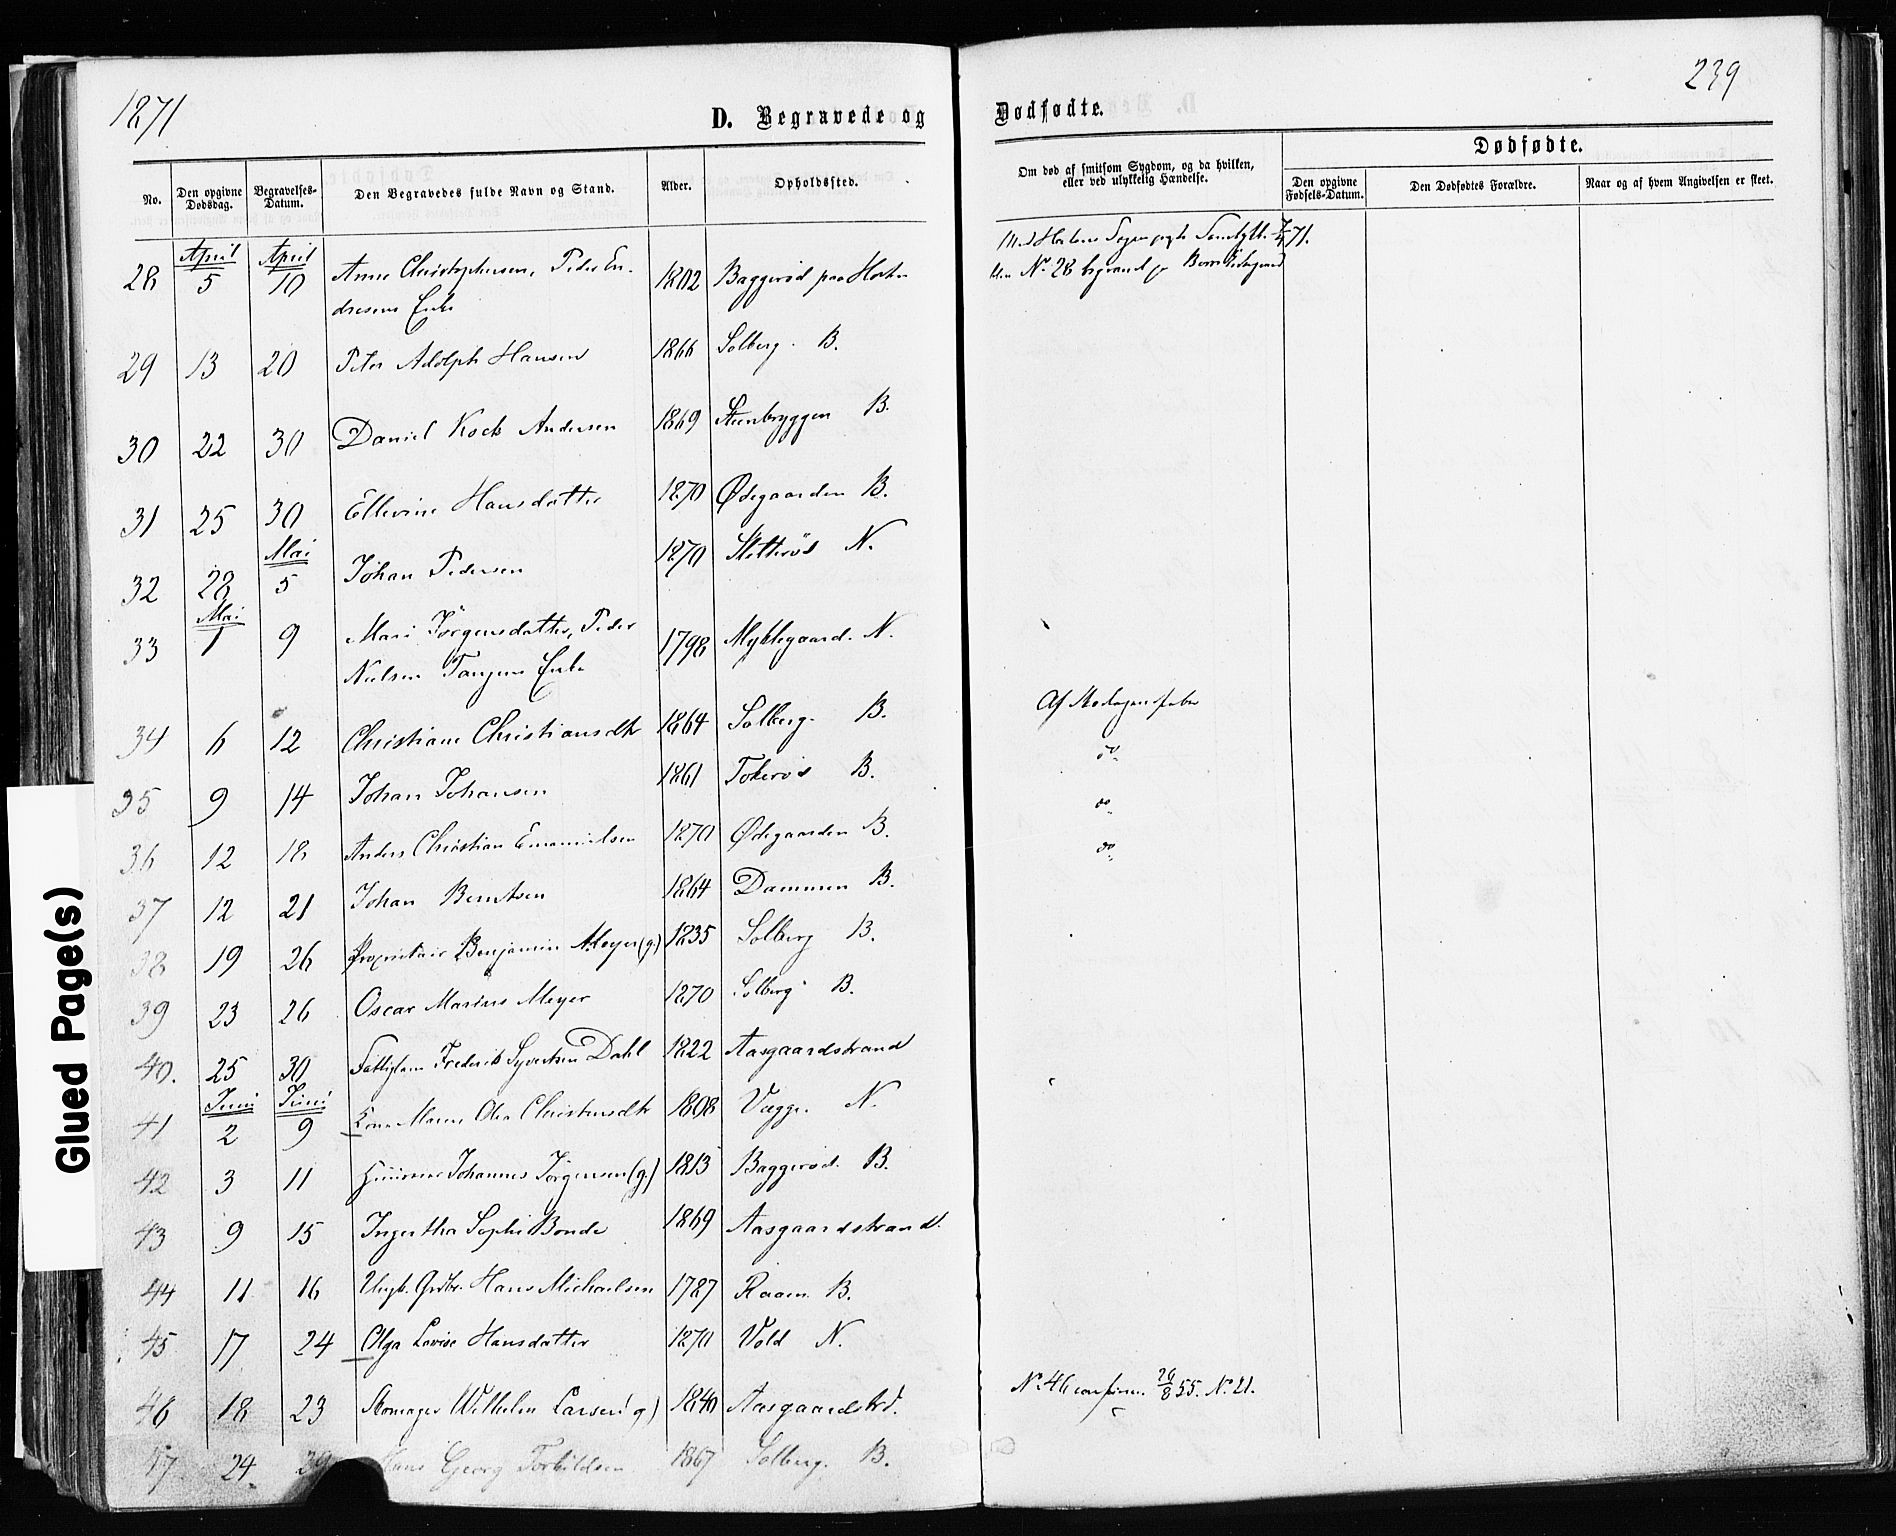 1871
239
D. Begravede og Dødfødte.
No. Den opgivne Dødsdag. Begravelses-Datum. Den Begravedes fulde Navn og Stand. Alder. Opholdssted.
Om død af smitsom Sygdom, og da hvilken, eller ved ulykkelig Hændelse.
Dødfødte.
Den opgivne Fødsels-Datum. Den Dødfødtes Forældre. Naar og af hvem Angivelsen er skeet.
April April
28 5 10 Anne Christophersen, Peder En- 1802 Baggerød paa
dresens Enke
No 28 begravet
29 13 20 Peter Adolph Hansen 1866 Solberg. B.
30 22 30 Daniel Kock Andersen 1869 Steenbryggen B.
31 25 30 Ellevine Hansdatter 1870 Ødegaarden B.
Mai
32 28 5 Johan Pedersen 1870 N.
Mai
33 1 9 Mari Jørgensdatter, Peder 1798 Myklegaard. N.
Nielsen Tangens Enke
34 6 12 Christiane Christiansdtr 1864 Solberg. B. Af
35 9 14 Johan Johansen 1861 Tokerød B. do
36 12 18 Anders Christian Emanuelsen 1870 Ødegaarden B. do
37 12 21 Johan Berntsen 1864 Dammen B. do
38 19 26 Proprietair Benjamin Meyer (g.) 1835 Solberg B.
39 23 26 Oscar Marius Meyer 1870 Solberg B.
40. 25 30 Fattiglem Frederik Syvertsen Dahl 1822 Aasgaardstrand
Juni Juni
41 2 9 Kone Maren Olea Christensdtr 1808 N.
42 3 11 Johannes Jørgensen (g.) 1813 Baggerød. B.
43 9 15 Ingertha Sophie Bonde 1869 Aasgaardstrand.
44 11 16 Hans Michaelsen 1787 Raaen B.
45 17 24 Olga Lovise Hansdatter 1870 Vold N.
46 18 23 Skomager Wilhelm Larsen (g) 1840 Aasgaardstrd. No 46 confirm. 26/8 55. No 21.
47 24 29 Hans Georg Torkildsen 1867 Solberg. B.
Glued Page(s)